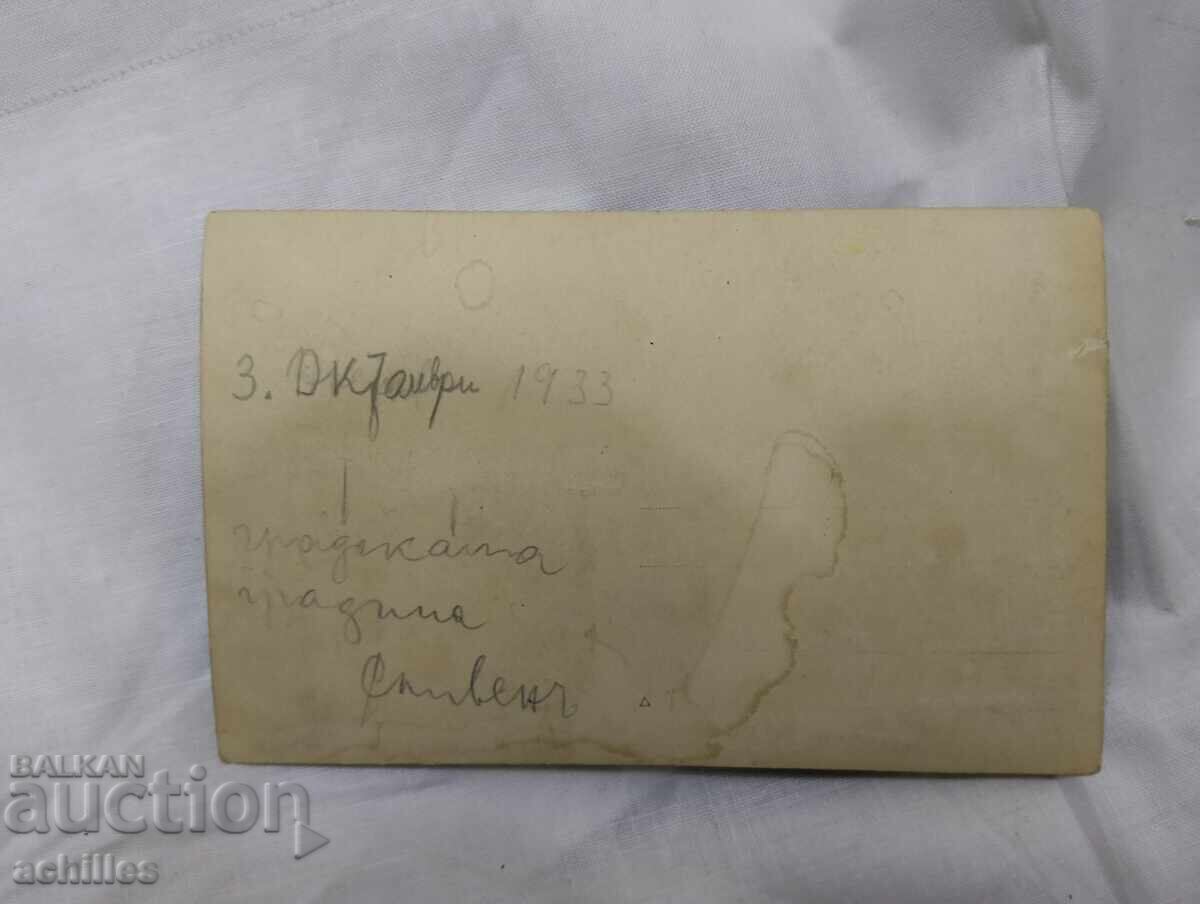 3. Октомври 1933
градската
градина
Сливенъ
BALKAN
auction
achilles